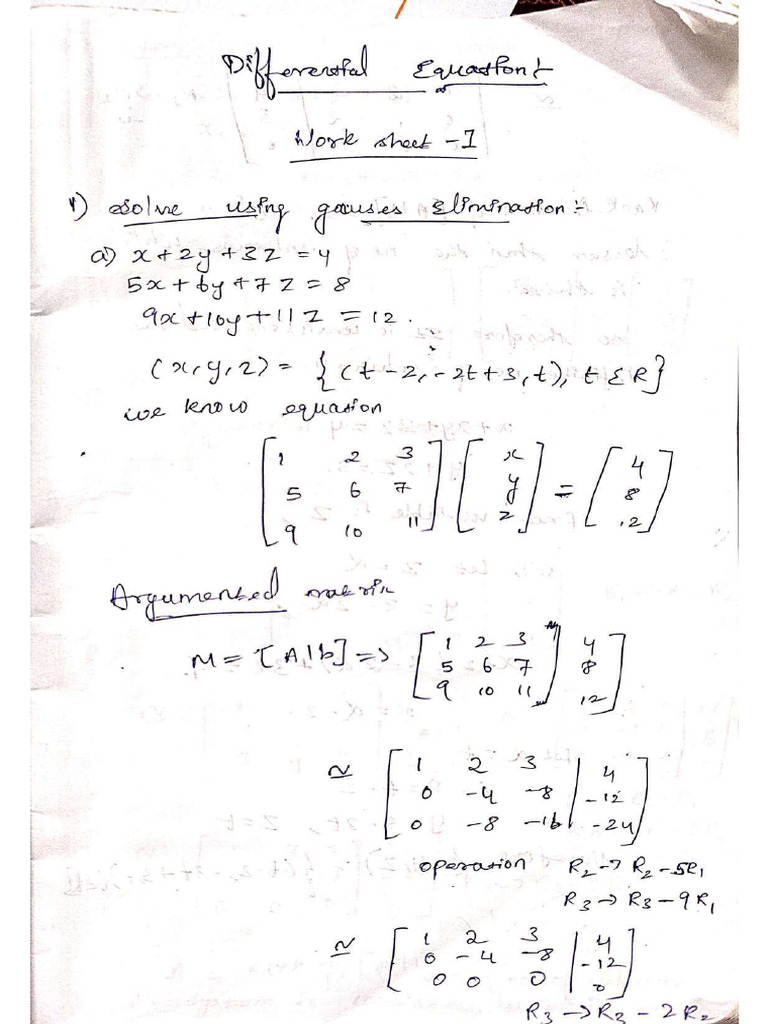 Differential Equation:-
Work sheet -1
1) solve using gauses Elimination:-
a) x+2y+3z=4
5x+6y+7z=8
9x+10y+11z=12.
(x,y,z) = {(t-2,-2t+3,t), t ε R}
we know equation
[1 2 3] [x] = [4]
[5 6 7] [y] [8]
[9 10 11] [z] [12]
Argumented matrix
M = [A|b] => [1 2 3 | 4]
[5 6 7 | 8]
[9 10 11 | 12]
≃ [1 2 3 | 4]
[0 -4 -8 | -12]
[0 -8 -16 | -24]
operation R2 -> R2-5R1
R3 -> R3-9R1
≃ [1 2 3 | 4]
[0 -4 -8 | -12]
[0 0 0 | 0]
R3 -> R3 - 2R2